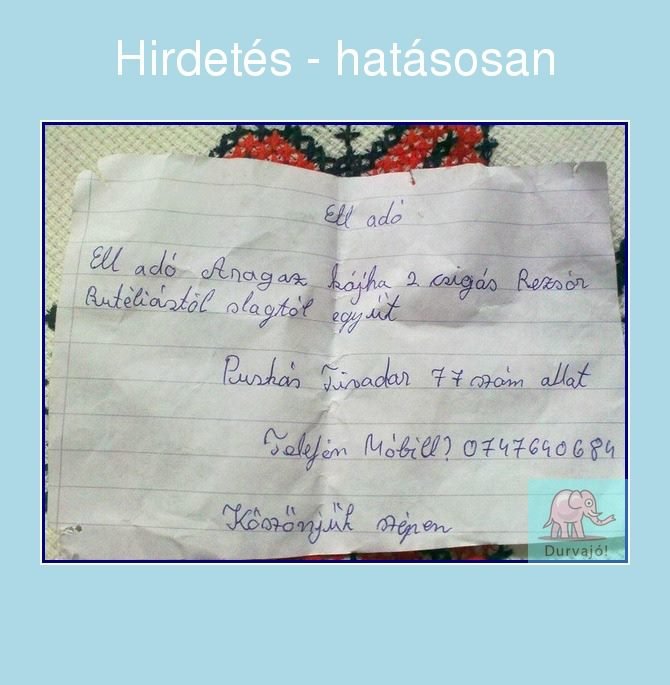 Hirdetés - hatásosan
Ell adó
Ell adó Aragaz kájha 2 csigás Rezsór
Butéliástól slagtól együt
Puskás Tivadar 77 szám allat
Telefón Móbill? 0747640684
Kőszőnjűk szépen
Durvajó!